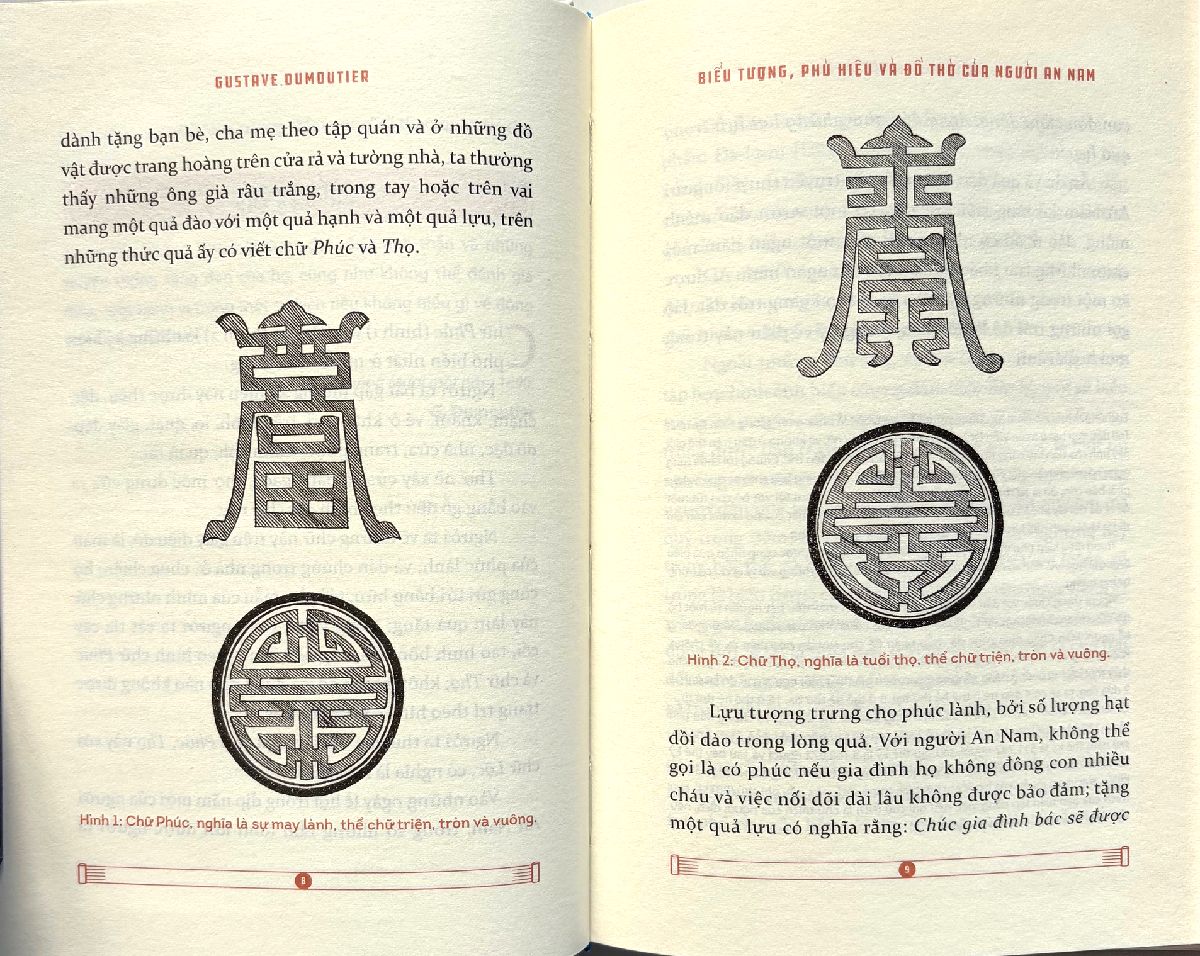 GUSTAVE DUMOUTIER
dành tặng bạn bè, cha mẹ theo tập quán và ở những đồ
vật được trang hoàng trên cửa rả và tường nhà, ta thường
thấy những ông già râu trắng, trong tay hoặc trên vai
mang một quả đào với một quả hạnh và một quả lựu, trên
những thức quả ấy có viết chữ Phúc và Thọ.
Hình 1: Chữ Phúc, nghĩa là sự may lành, thể chữ triện, tròn và vuông.
8
BIỂU TƯỢNG, PHÙ HIỆU VÀ ĐỒ THỜ CỦA NGƯỜI AN NAM
Hình 2: Chữ Thọ, nghĩa là tuổi thọ, thể chữ triện, tròn và vuông.
Lựu tượng trưng cho phúc lành, bởi số lượng hạt
dồi dào trong lòng quả. Với người An Nam, không thể
gọi là có phúc nếu gia đình họ không đông con nhiều
cháu và việc nối dõi dài lâu không được bảo đảm; tặng
một quả lựu có nghĩa rằng: Chúc gia đình bác sẽ được
9